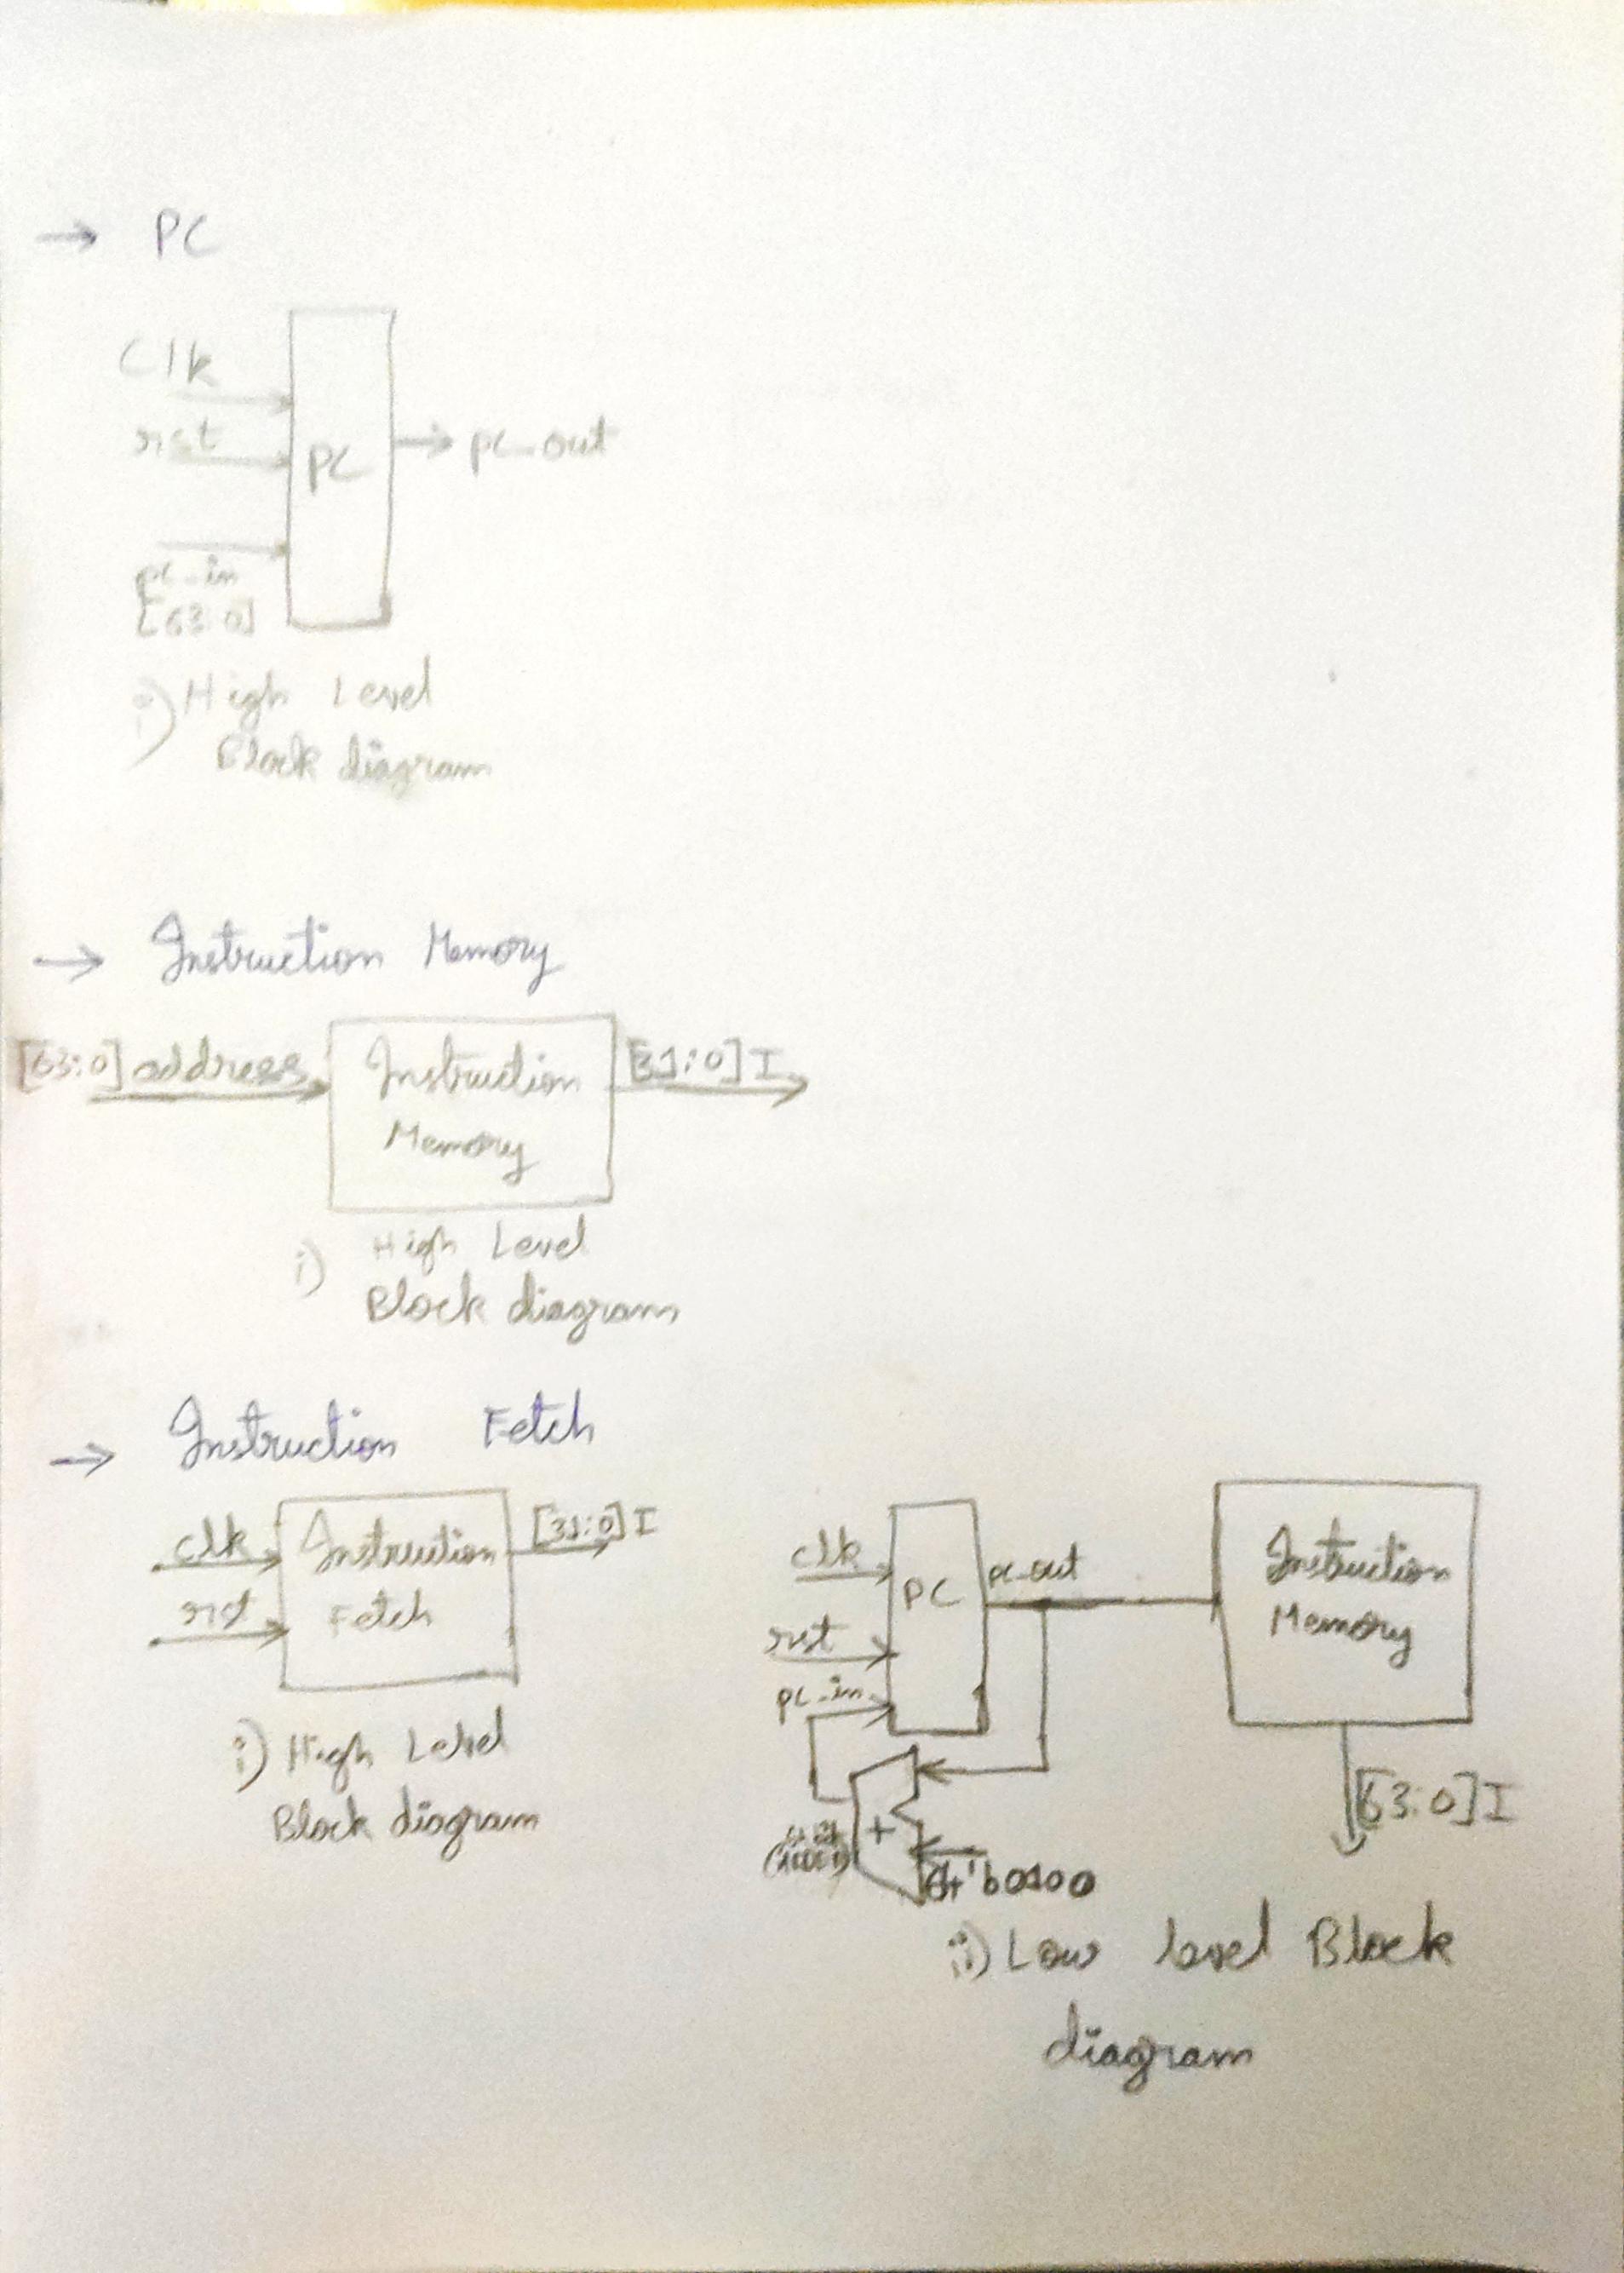 → PC
Clk
rst
PC
→ pc_out
pc_in
[63:0]
i) High Level
Block diagram
→ Instruction Memory
[63:0] address
Instruction
Memory
[31:0] I
i) High Level
Block diagram
→ Instruction Fetch
clk
rst
Instruction
Fetch
[31:0] I
i) High Level
Block diagram
clk
rst
pc_in
PC
pc_out
Instruction
Memory
[63:0] I
+
'b0100
ii) Low level Block
diagram